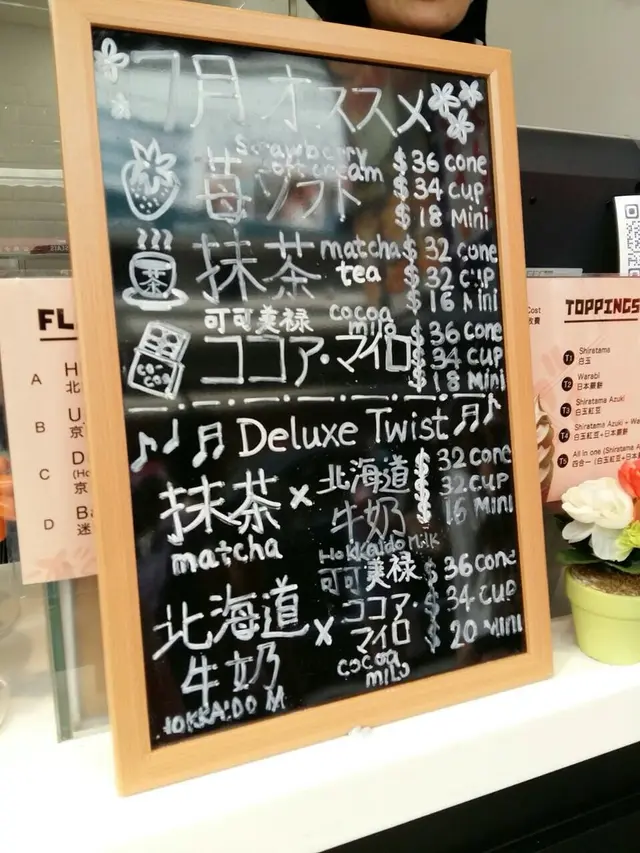 7月 オススメ
Strawberry
soft cream
苺ソフト
$36 cone
$34 cup
$18 Mini
抹茶
matcha
tea
$32 cone
$32 cup
$16 Mini
可可美禄
cocoa
milo
ココア・マイロ
co-
coa
$36 cone
$34 cup
$18 Mini
Deluxe Twist
抹茶 × 北海道
牛奶
matcha
Hokkaido Milk
$32 cone
$32 cup
$16 Mini
北海道
牛奶
HOKKAIDO M
×
可可美禄
ココア・
マイロ
cocoa
milo
$36 cone
$34 cup
$20 Mini
FL
A
B
C
D
TOPPINGS
T1 Shiratama
白玉
T2 Warabi
日本蕨餅
T3 Shiratama Azuki
白玉紅豆
T4 Shiratama Azuki + Wa
白玉紅豆+日本蕨
T5 All in one (Shiratama A
四合一 (白玉紅豆+日本